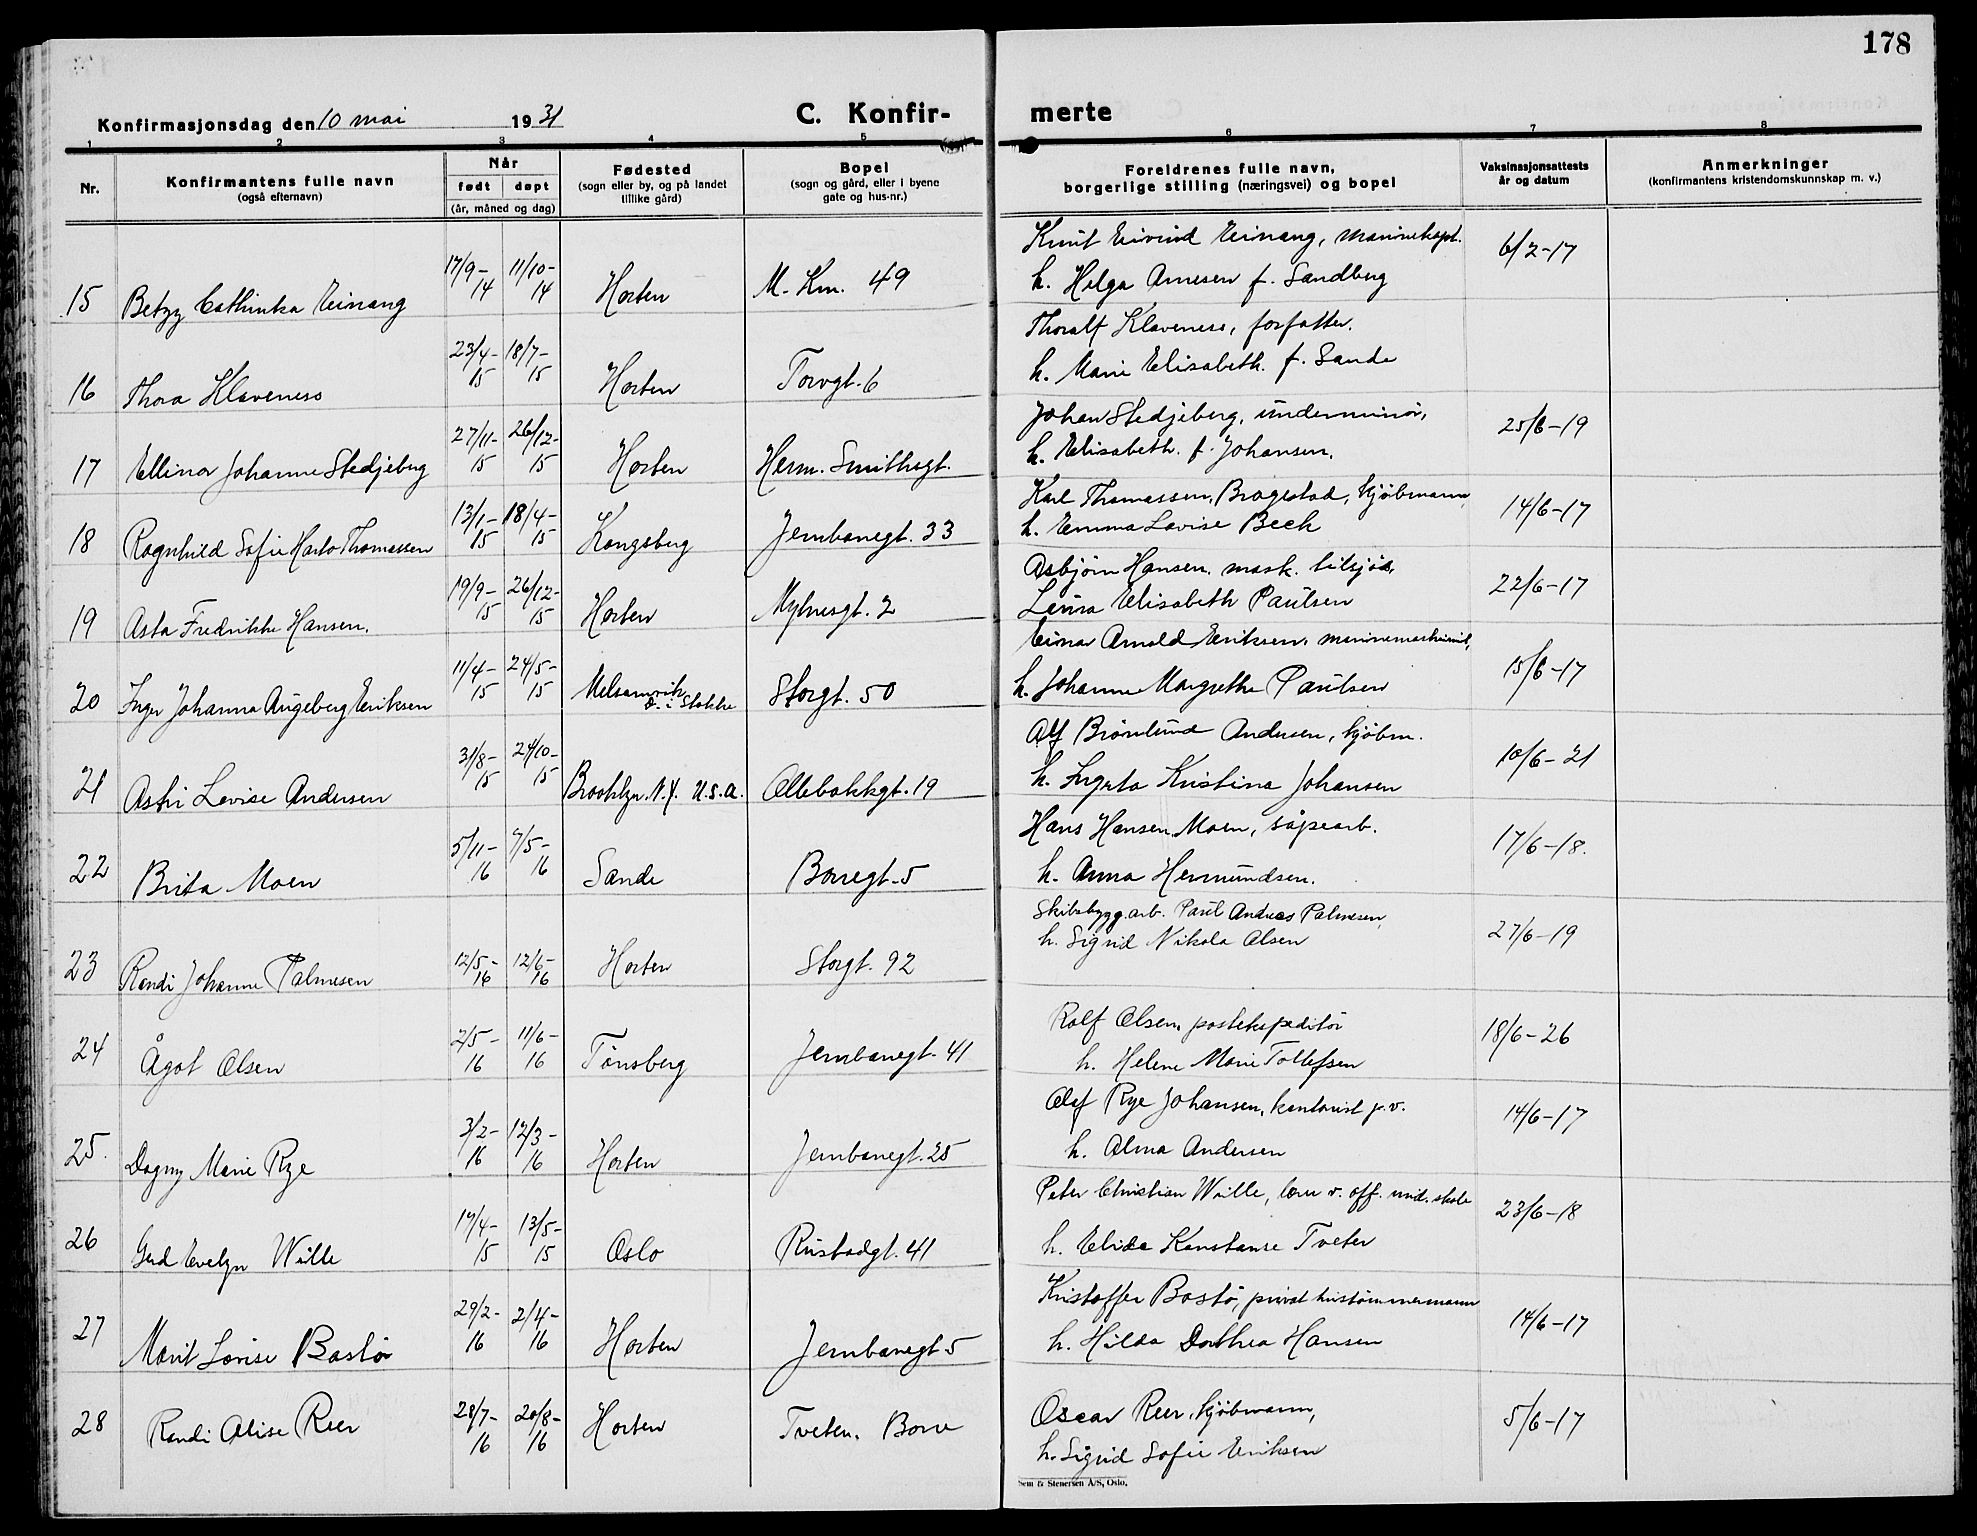 178
Konfirmasjonsdag den 10 mai 1931
C. Konfir-
merte
1 2 3 4 5 6 7 8
Nr.
Konfirmantens fulle navn
(også efternavn)
Når
født døpt
(år, måned og dag)
Fødested
(sogn eller by, og på landet
tillike gård)
Bopel
(sogn og gård, eller i byene
gate og hus-nr.)
Foreldrenes fulle navn,
borgerlige stilling (næringsvei) og bopel
Vaksinasjonsattests
år og datum
Anmerkninger
(konfirmantens kristendomskunnskap m. v.)
Knut Eivind Einang, marinekapt.
15 Betzy Cathinka Einang 17/9-14 11/10-14 Horten M. Km. 49 h. Helga Arnesen f. Sandberg 6/2-17
Thoralf Klaveness, forfatter.
16 Thora Klaveness 23/4-15 18/7-15 Horten Torvgt. 6 h. Marie Elisabeth. f. Sande
Johan Stedjeberg, underminør,
17 Ellinor Johanne Stedjeberg 27/11-15 26/12-15 Horten Herm. Smithsgt. h. Elisabeth. f. Johansen. 25/6-19
Karl Thomassen, Bragestad, kjøbmann,
18 Ragnhild Sofie Harlo Thomassen 13/1-15 18/4-15 Kongsberg Jernbanegt. 33 h. Emma Lovise Bech 14/6-17
Asbjørn Hansen. mask. tilsjøs,
19 Asta Fredrikke Hansen. 19/9-15 26/12-15 Horten Myhresgt. 2 Elisabeth Paulsen 22/6-17
Einar Arnold Eriksen, marinemaskinist,
20 Inger Johanna Augeberg Eriksen 11/4-15 24/5-15 Melsomvik Stokke Storgt. 50 h. Johanne Margrethe Paulsen 15/6-17
Alf Brønlund Andersen, kjøbm.
21 Astri Levise Andersen 31/8-15 24/10-15 Brooklyn. N.Y. U.S.A. Ollebakkgt. 19 h. Kristina Johansen 10/6-21
Hans Hansen Moen, såpearb.
22 Brita Moen 5/11-16 7/5-16 Sande Borregt. 5 h. Anna Hermundsen. 17/6-18.
Skibsbygg.arb. Paul Andreas Palmesen,
23 Randi Johanne Palmesen 12/5-16 12/6-16 Horten Storgt. 92 h. Sigrid Nikola Olsen 27/6-19
Rolf Olsen, postekspeditør
24 Ågot Olsen 2/5-16 11/6-16 Tønsberg Jernbanegt. 41 h. Helene Marie Tollefsen 18/6-26
Olaf Rye Johansen, kontorist p.v.
25. Dagny Marie Rye 3/2-16 12/3-16 Horten Jernbanegt. 25 h. Alma Andersen 14/6-17
Peter Christian Wille, lærer v. off. mid. skole
26 Gerd Evelyn Wille 17/4-15 13/5-15 Oslo Rustadgt. 41 h. Elida Konstanse Tveter 23/6-18
Kristoffer Bastø, privat hustømmermann
27 Marit Lovise Bastø 29/2-16 2/4-16 Horten Jernbanegt 5 h. Hilda Dorthea Hansen 14/6-17
28 Randi Alise Reer 28/7-16 20/8-16 Horten Tveten, Borre Oscar Reer, kjøbmann, 5/6-17
h. Sigrid Sofie Eriksen
Sem & Stenersen A/S, Oslo.